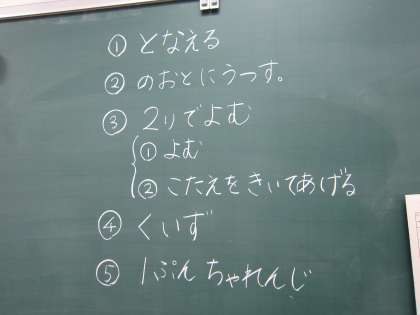 ① となえる
② のおとにうつす。
③ 2りでよむ
① よむ
② こたえをきいてあげる
④ くいず
⑤ 1ぷんちゃれんじ